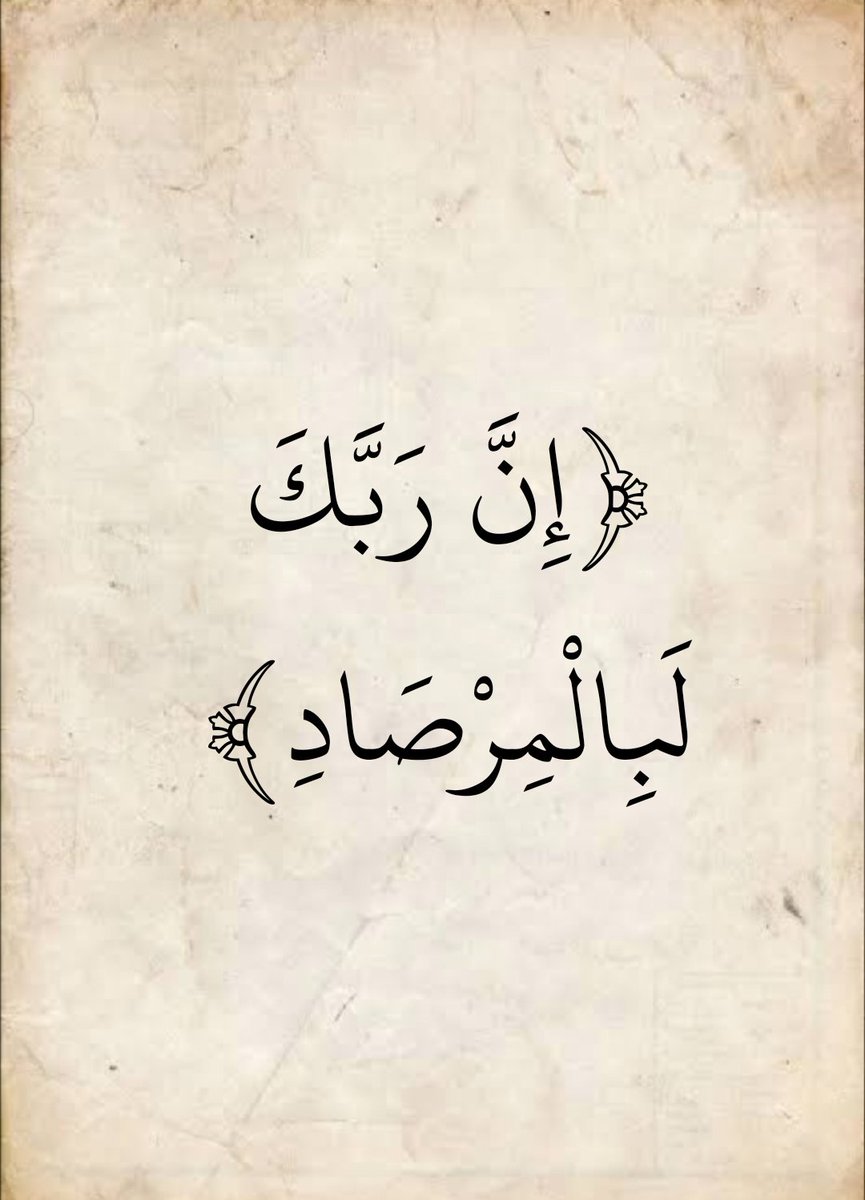 ﴿إِنَّ رَبَّكَ
لَبِالْمِرْصَادِ﴾